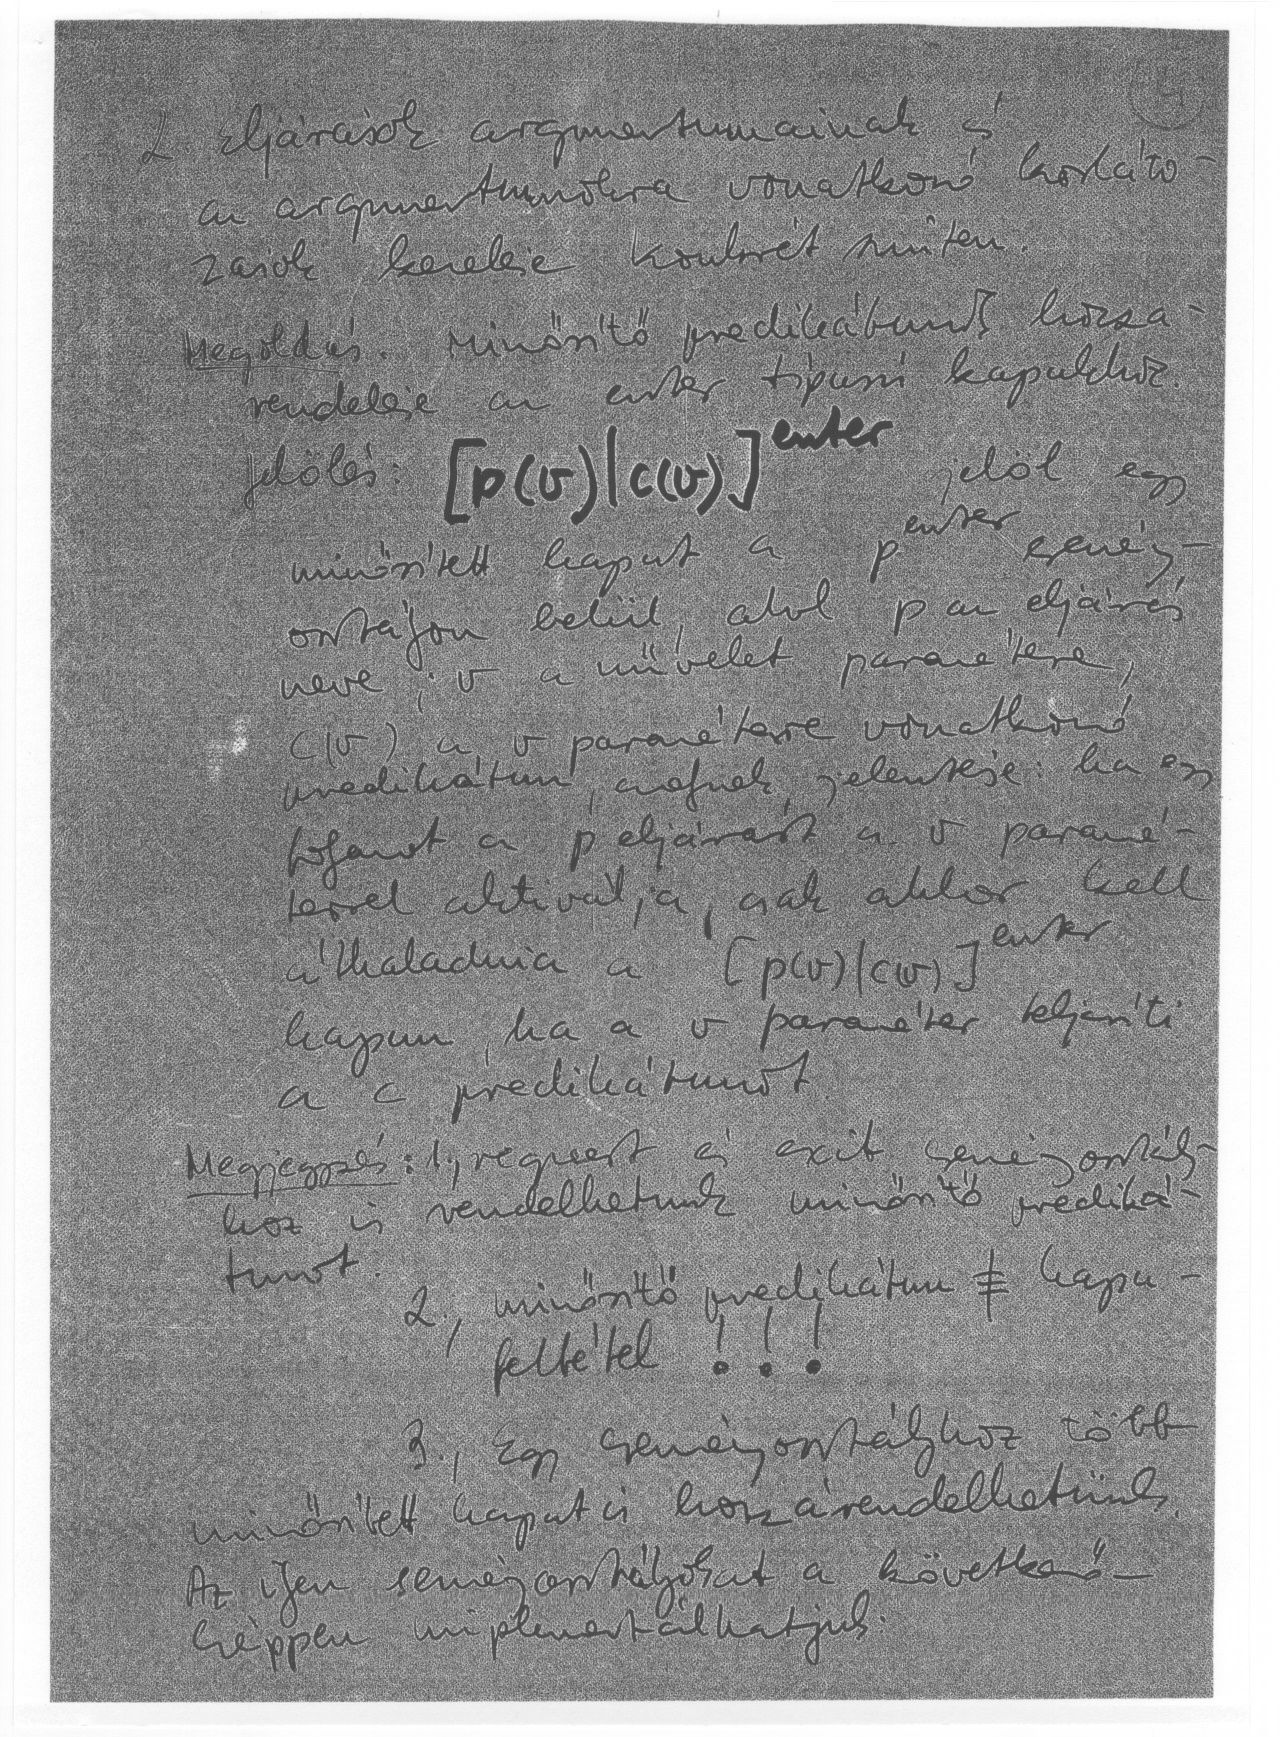 4.
2. Eljárások argumentumainak és
az argumentumokra vonatkozó korláto-
zások kezelése konkrét szinten.
Megoldás. Minősítő predikátumok hozzá-
rendelése az enter típusú kapukhoz.
Jelölés: [p(v)|c(v)]^enter jelöl egy
minősített kaput a p^enter esemény-
osztályon belül, ahol p az eljárás
neve; v a művelet paramétere,
c(v) a v paraméterre vonatkozó
predikátum, melynek jelentése: ha egy
folyamat a p eljárást a v paramé-
terrel aktiválja, csak akkor kell
áthaladnia a [p(v)|c(v)]^enter
kapun, ha a v paraméter teljesíti
a c predikátumot.
Megjegyzés: 1., request és exit eseményosztály-
hoz is rendelhetünk minősítő prediká-
tumot.
2., minősítő predikátum ≢ kapu-
feltétel !!!
3., Egy eseményosztályhoz több
minősített kaput is hozzárendelhetünk.
Az ilyen eseményosztályokat a következő-
képpen implementálhatjuk: